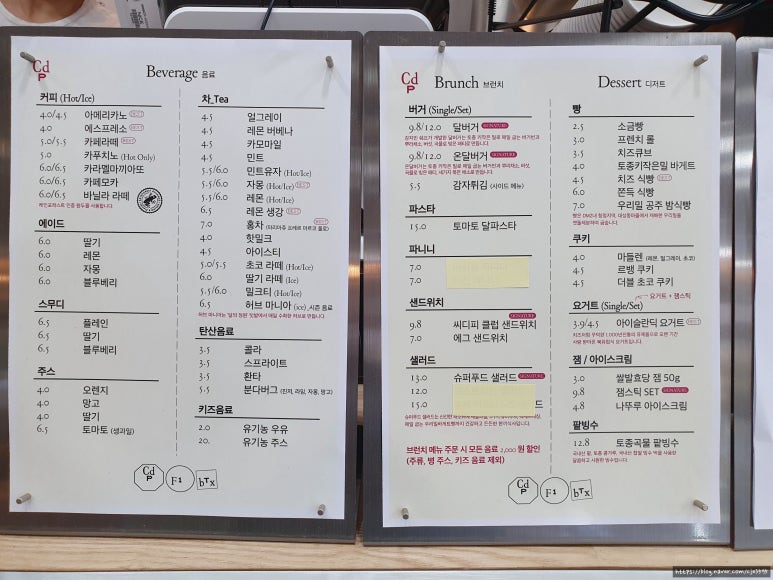 Cd
P
Beverage 음료
커피 (Hot/Ice)
4.0/4.5 아메리카노 BEST
4.0 에스프레소 BEST
5.0/5.5 카페라떼 BEST
5.0 카푸치노 (Hot Only)
6.0/6.5 카라멜마끼아또
6.0/6.5 카페모카
6.0/6.5 바닐라 라떼
에이드
6.0 딸기
6.0 레몬
6.0 자몽
6.0 블루베리
스무디
6.5 플레인
6.5 딸기
6.5 블루베리
주스
4.0 오렌지
4.0 망고
4.0 딸기
6.5 토마토 (생과일)
차_Tea
4.5 얼그레이
4.5 레몬 버베나
4.5 카모마일
4.5 민트
5.5/6.0 민트유자 (Hot/Ice)
5.5/6.0 자몽 (Hot/Ice) BEST
5.5/6.0 레몬 (Hot/Ice)
6.5 레몬 생강 BEST
7.0 홍차 BEST
4.0 핫밀크
4.5 아이스티
5.0/5.5 초코 라떼 (Hot/Ice)
6.0 딸기 라떼 (Ice)
5.5/6.0 밀크티 (Hot/Ice)
6.5 허브 마니아 (ice)_시즌 음료
탄산음료
3.5 콜라
3.5 스프라이트
3.5 환타
5.5 분다버그 (진저, 라임, 자몽, 망고)
키즈음료
2.0 유기농 우유
2.0. 유기농 주스
Cd
P
F1
bTx
Cd
P
Brunch 브런치
버거 (Single/Set)
9.8/12.0 달버거 SIGNATURE
9.8/12.0 온달버거 SIGNATURE
5.5 감자튀김 (사이드 메뉴)
파스타
15.0 토마토 달파스타
파니니
7.0
7.0
샌드위치
9.8 씨디피 클럽 샌드위치 SIGNATURE
7.0 에그 샌드위치
샐러드
13.0 슈퍼푸드 샐러드 SIGNATURE
12.0
15.0 드
브런치 메뉴 주문 시 모든 음료 2,000 원 할인
(주류, 병 주스, 키즈 음료 제외)
Dessert 디저트
빵
2.5 소금빵
3.0 프렌치 롤
3.5 치즈큐브
4.0 토종키작은밀 바게트
4.5 치즈 식빵 BEST
6.0 쫀득 식빵
7.0 우리밀 공주 밤식빵
쿠키
4.0 마들렌 (레몬, 얼그레이, 초코)
4.5 르뱅 쿠키
4.5 더블 초코 쿠키
요거트 + 잼스틱
요거트 (Single/Set)
3.9/4.5 아이슬란딕 요거트 BEST
잼 / 아이스크림
3.0 쌀발효당 잼 50g
9.8 잼스틱 SET SIGNATURE
4.8 나뚜루 아이스크림
팥빙수
12.8 토종곡물 팥빙수
Cd
P
F1
bTx